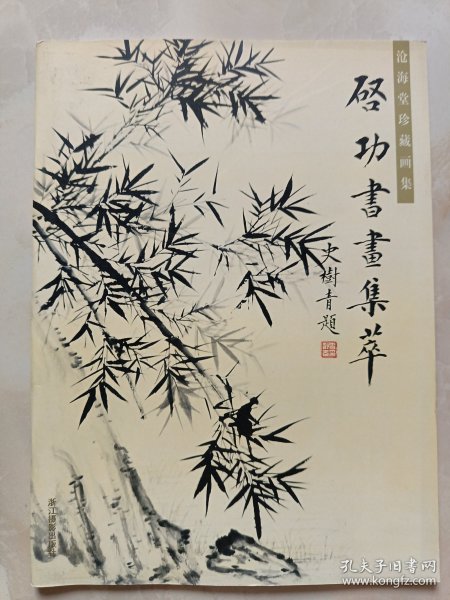 沧海堂珍藏画集
啓功書畫集萃
史樹青題
浙江摄影出版社
孔夫子旧书网
www.kongfz.com